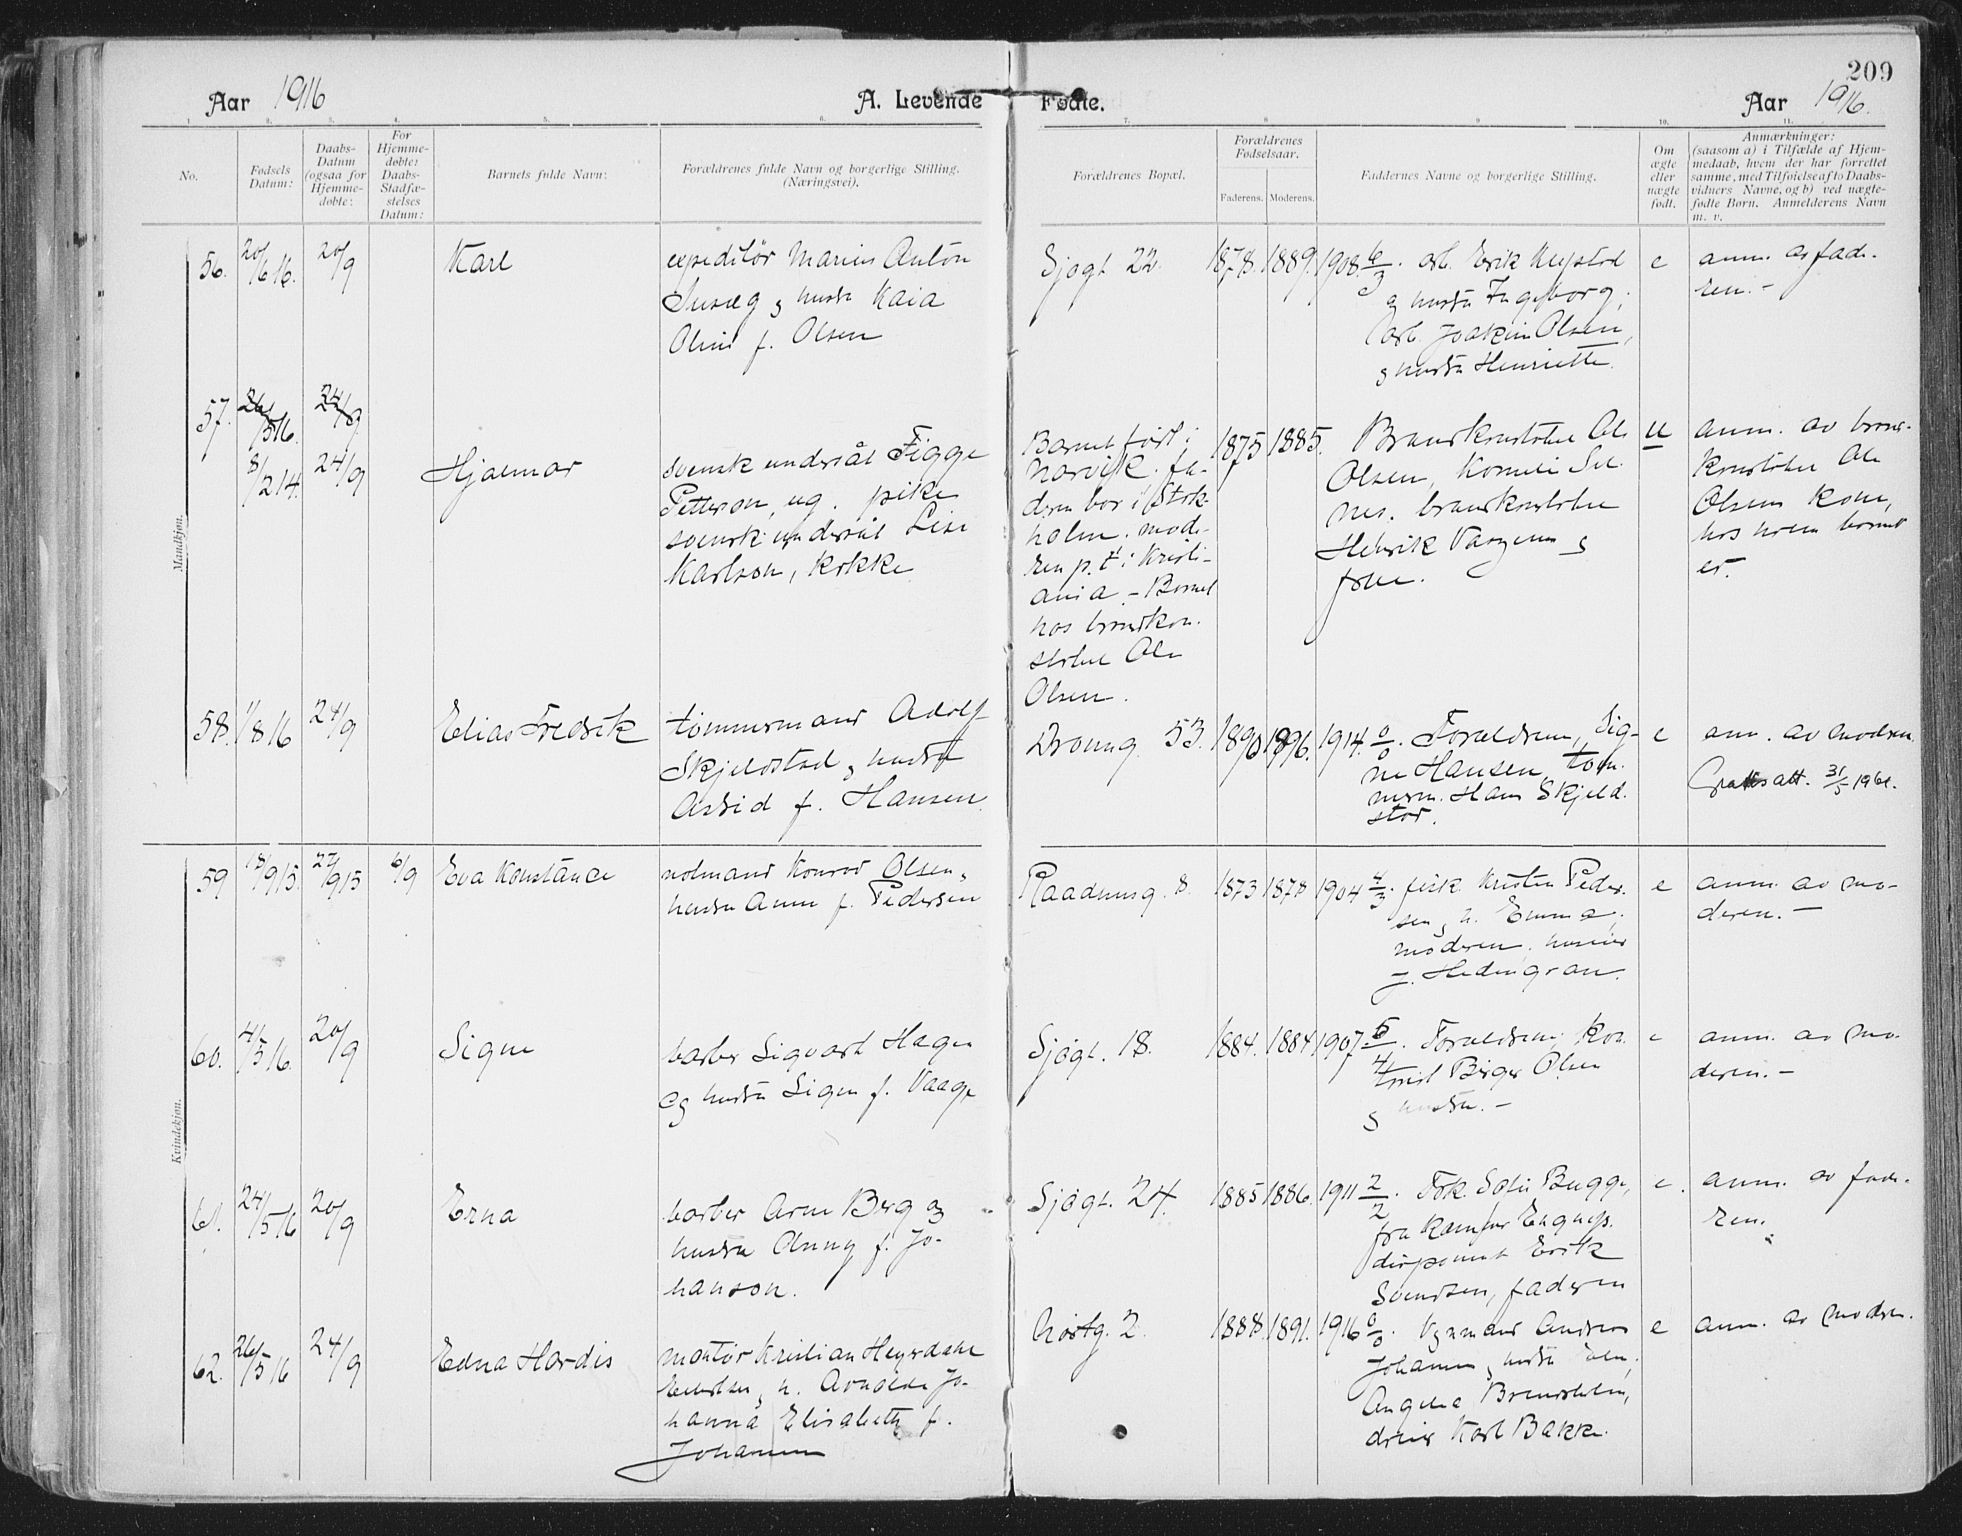 209
Aar 1916
A. Levende Fødte.
Aar 1916.
1.
2.
3.
4.
5.
6.
7.
8
9
10.
11.
No.
Fødsels Datum:
Daabs-Datum (ogsaa for Hjemme-døbte:
For Hjemme-døbte: Daabs-Stadfæ-stelses Datum:
Barnets fulde Navn:
Forældrenes fulde Navn og borgerlige Stilling. (Næringsvei).
Forældrenes Bopæl.
Forældrenes Fødselsaar.
Faderens. Moderens.
Faddernes Navne og borgerlige Stilling.
Om ægte eller uægte født.
Anmærkninger:
(saasom a) i Tilfælde af Hjem-
medaab, hvem der har forrettet
samme, med Tilføielse af to Daabs-
vidners Navne, og b) ved uægte-
fødte Børn. Anmelderens Navn
m. v.
Mandkjøn.
56. 20/6 16. 20/9 Karl
expeditør Marius Anton
og hustr Kaia
f. Olsen
Sjøgt 22. 1878. 1889.
1908 6/3. arb. Erik
og hustru Ingeborg,
arb. Joakim Olsen,
og hustru Henriette.
e
anm. av fade-
ren.-
57. 26/5 16. 24/9
8/2 14. 24/9 Hjalmar
svensk undersåt Figge
Petterson, ug. pike
svensk undersåt Lise
Karlson, kokke
Barnet født i
Narvik. fa-
deren bor i Stok-
holm. mode-
ren p. t. i Kristi-
ania - Barnet
hos brandkon-
stabel Ole
Olsen.
1875 1885.
Brandkonstabel Ole
Olsen,
brandkonstabel
Henrik &
frue.
u
anm. av brand-
konstabel Ole
Olsens kone,
hos hvem barnet
er.
58. 1/8 16 24/9 Elias Fredrik
tømmermand Adolf
Skjeldstad og hustru
Astrid f. Hansen
Dronng 53. 1890 1896.
1914 0/0. Forældrene, Sig-
ne Hansen, tøm-
merm. Hans Skjeld-
stad.
e
anm. av modren.
Gratis att. 31/5 1961.
Kvindekjøn.
59 18/9 15. 27/9 15 6/9 Eva Konstance
notmand Konrad Olsen,
hustru Anna f. Pedersen
Raadhusg. 8. 1873 1878
1904 4/3. fisk. Kristen Peder-
sen, h. Emma,
moderen,
J. Hedingran.
e
anm. av mo-
deren.-
60. 4/5 16. 20/9 Signe
barber Sigvart Hagen
og hustru Signe f. Vaage
Sjøgt. 18. 1884. 1884
1907 6/4. Forældrene, Kon-
torist Birger Olsen
& hustru.-
e
anm. av mo-
deren.-
61. 24/5 16 20/9 Erna
barber Arne Berg og
hustru Anny f. Jo-
hanson.
Sjøgt. 24. 1885 1886.
1911 2/2. Frk. Sofie Bugge,
fru
disponent Erik
Svendsen, faderen
e.
anm. av fade-
ren.
62. 26/5 16 24/9 Edna Hardis
montør Kristian Heyerdahl
h. Arnolda Jo-
hanna Elisabeth f.
Johansen
Havg. 2. 1888. 1891.
1916 0/0. Vognmand Andreas
Johansen, hustru
Angelica
Karl Bakke.
e
anm. av modren.